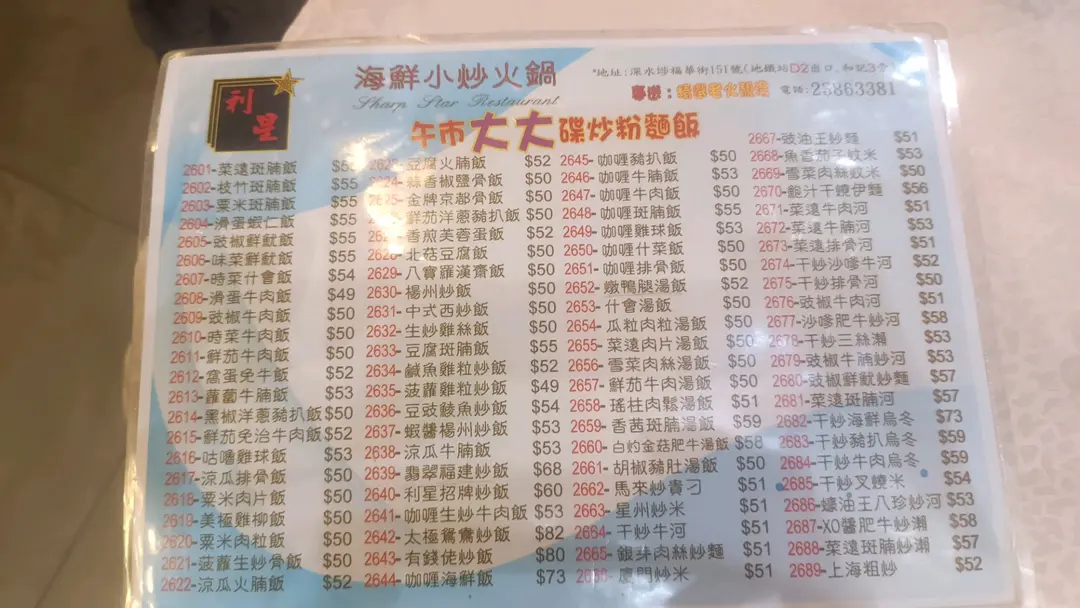 利星
海鮮小炒火鍋
Sharp Star Restaurant
*地址:深水埗福華街151號(地鐵站D2出口,和記3
電話:25863381
午市大大碟炒粉麵飯
2601-菜遠斑腩飯
2602-枝竹斑腩飯 $55
2603-粟米斑腩飯 $55
2604-滑蛋蝦仁飯 $55
2605-豉椒鮮魷飯 $55
2606-味菜鮮魷飯 $55
2607-時菜什會飯 $54
2608-滑蛋牛肉飯 $49
2609-豉椒牛肉飯 $50
2610-時菜牛肉飯 $50
2611-鮮茄牛肉飯 $50
2612-窩蛋免牛飯 $52
2613-蘿蔔牛腩飯 $53
2614-黑椒洋蔥豬扒飯 $50
2615-鮮茄免治牛肉飯 $52
2616-咕嚕雞球飯 $53
2617-涼瓜排骨飯 $50
2618-粟米肉片飯 $50
2619-美極雞柳飯 $50
2620-粟米肉粒飯 $50
2621-菠蘿生炒骨飯 $50
2622-涼瓜火腩飯 $52
豆腐火腩飯 $52
蒜香椒鹽骨飯 $50
金牌京都骨飯 $50
鮮茄洋蔥豬扒飯 $50
香煎芙蓉蛋飯 $52
北菇豆腐飯 $50
2629-八寶羅漢齋飯 $50
2630-楊州炒飯 $50
2631-中式西炒飯 $50
2632-生炒雞絲飯 $50
2633-豆腐斑腩飯 $55
2634-鹹魚雞粒炒飯 $52
2635-菠蘿雞粒炒飯 $49
2636-豆豉鯪魚炒飯 $54
2637-蝦醬楊州炒飯 $53
2638-涼瓜牛腩飯 $53
2639-翡翠福建炒飯 $68
2640-利星招牌炒飯 $60
2641-咖喱生炒牛肉飯 $53
2642-太極鴛鴦炒飯 $82
2643-有錢佬炒飯 $80
2644-咖喱海鮮飯 $73
2645-咖喱豬扒飯 $50
2646-咖喱牛腩飯 $53
2647-咖喱牛肉飯 $50
2648-咖喱斑腩飯 $55
2649-咖喱雞球飯 $53
2650-咖喱什菜飯 $50
2651-咖喱排骨飯 $50
2652-燉鴨腿湯飯 $52
2653-什會湯飯 $50
2654-瓜粒肉粒湯飯 $50
2655-菜遠肉片湯飯 $50
2656-雪菜肉絲湯飯 $50
2657-鮮茄牛肉湯飯 $50
2658-瑤柱肉鬆湯飯 $51
2659-香茜斑腩湯飯 $59
2660-白灼金菇肥牛湯飯 $58
2661-胡椒豬肚湯飯 $50
2662-馬來炒貴刁 $51
2663-星州炒米 $51
2664-干炒牛河 $51
2665-銀芽肉絲炒麵 $51
2666-廈門炒米 $51
2667-豉油王炒麵 $51
2668-魚香茄子炆米 $53
2669-雪菜肉絲炆米 $50
2670-鮑汁干燒伊麵 $56
2671-菜遠牛肉河 $51
2672-菜遠牛腩河 $53
2673-菜遠排骨河 $51
2674-干炒沙嗲牛河 $52
2675-干炒排骨河 $50
2676-豉椒牛肉河 $51
2677-沙嗲肥牛炒河 $58
2678-干炒三絲瀨 $53
2679-豉椒牛腩炒河 $53
2680-豉椒鮮魷炒麵 $57
2681-菜遠斑腩河 $57
2682-干炒海鮮烏冬 $73
2683-干炒豬扒烏冬 $59
2684-干炒牛肉烏冬 $59
2685-干炒叉燒米 $54
2686-蠔油王八珍炒河 $53
2687-XO醬肥牛炒瀨 $58
2688-菜遠斑腩炒瀨 $57
2689-上海粗炒 $52